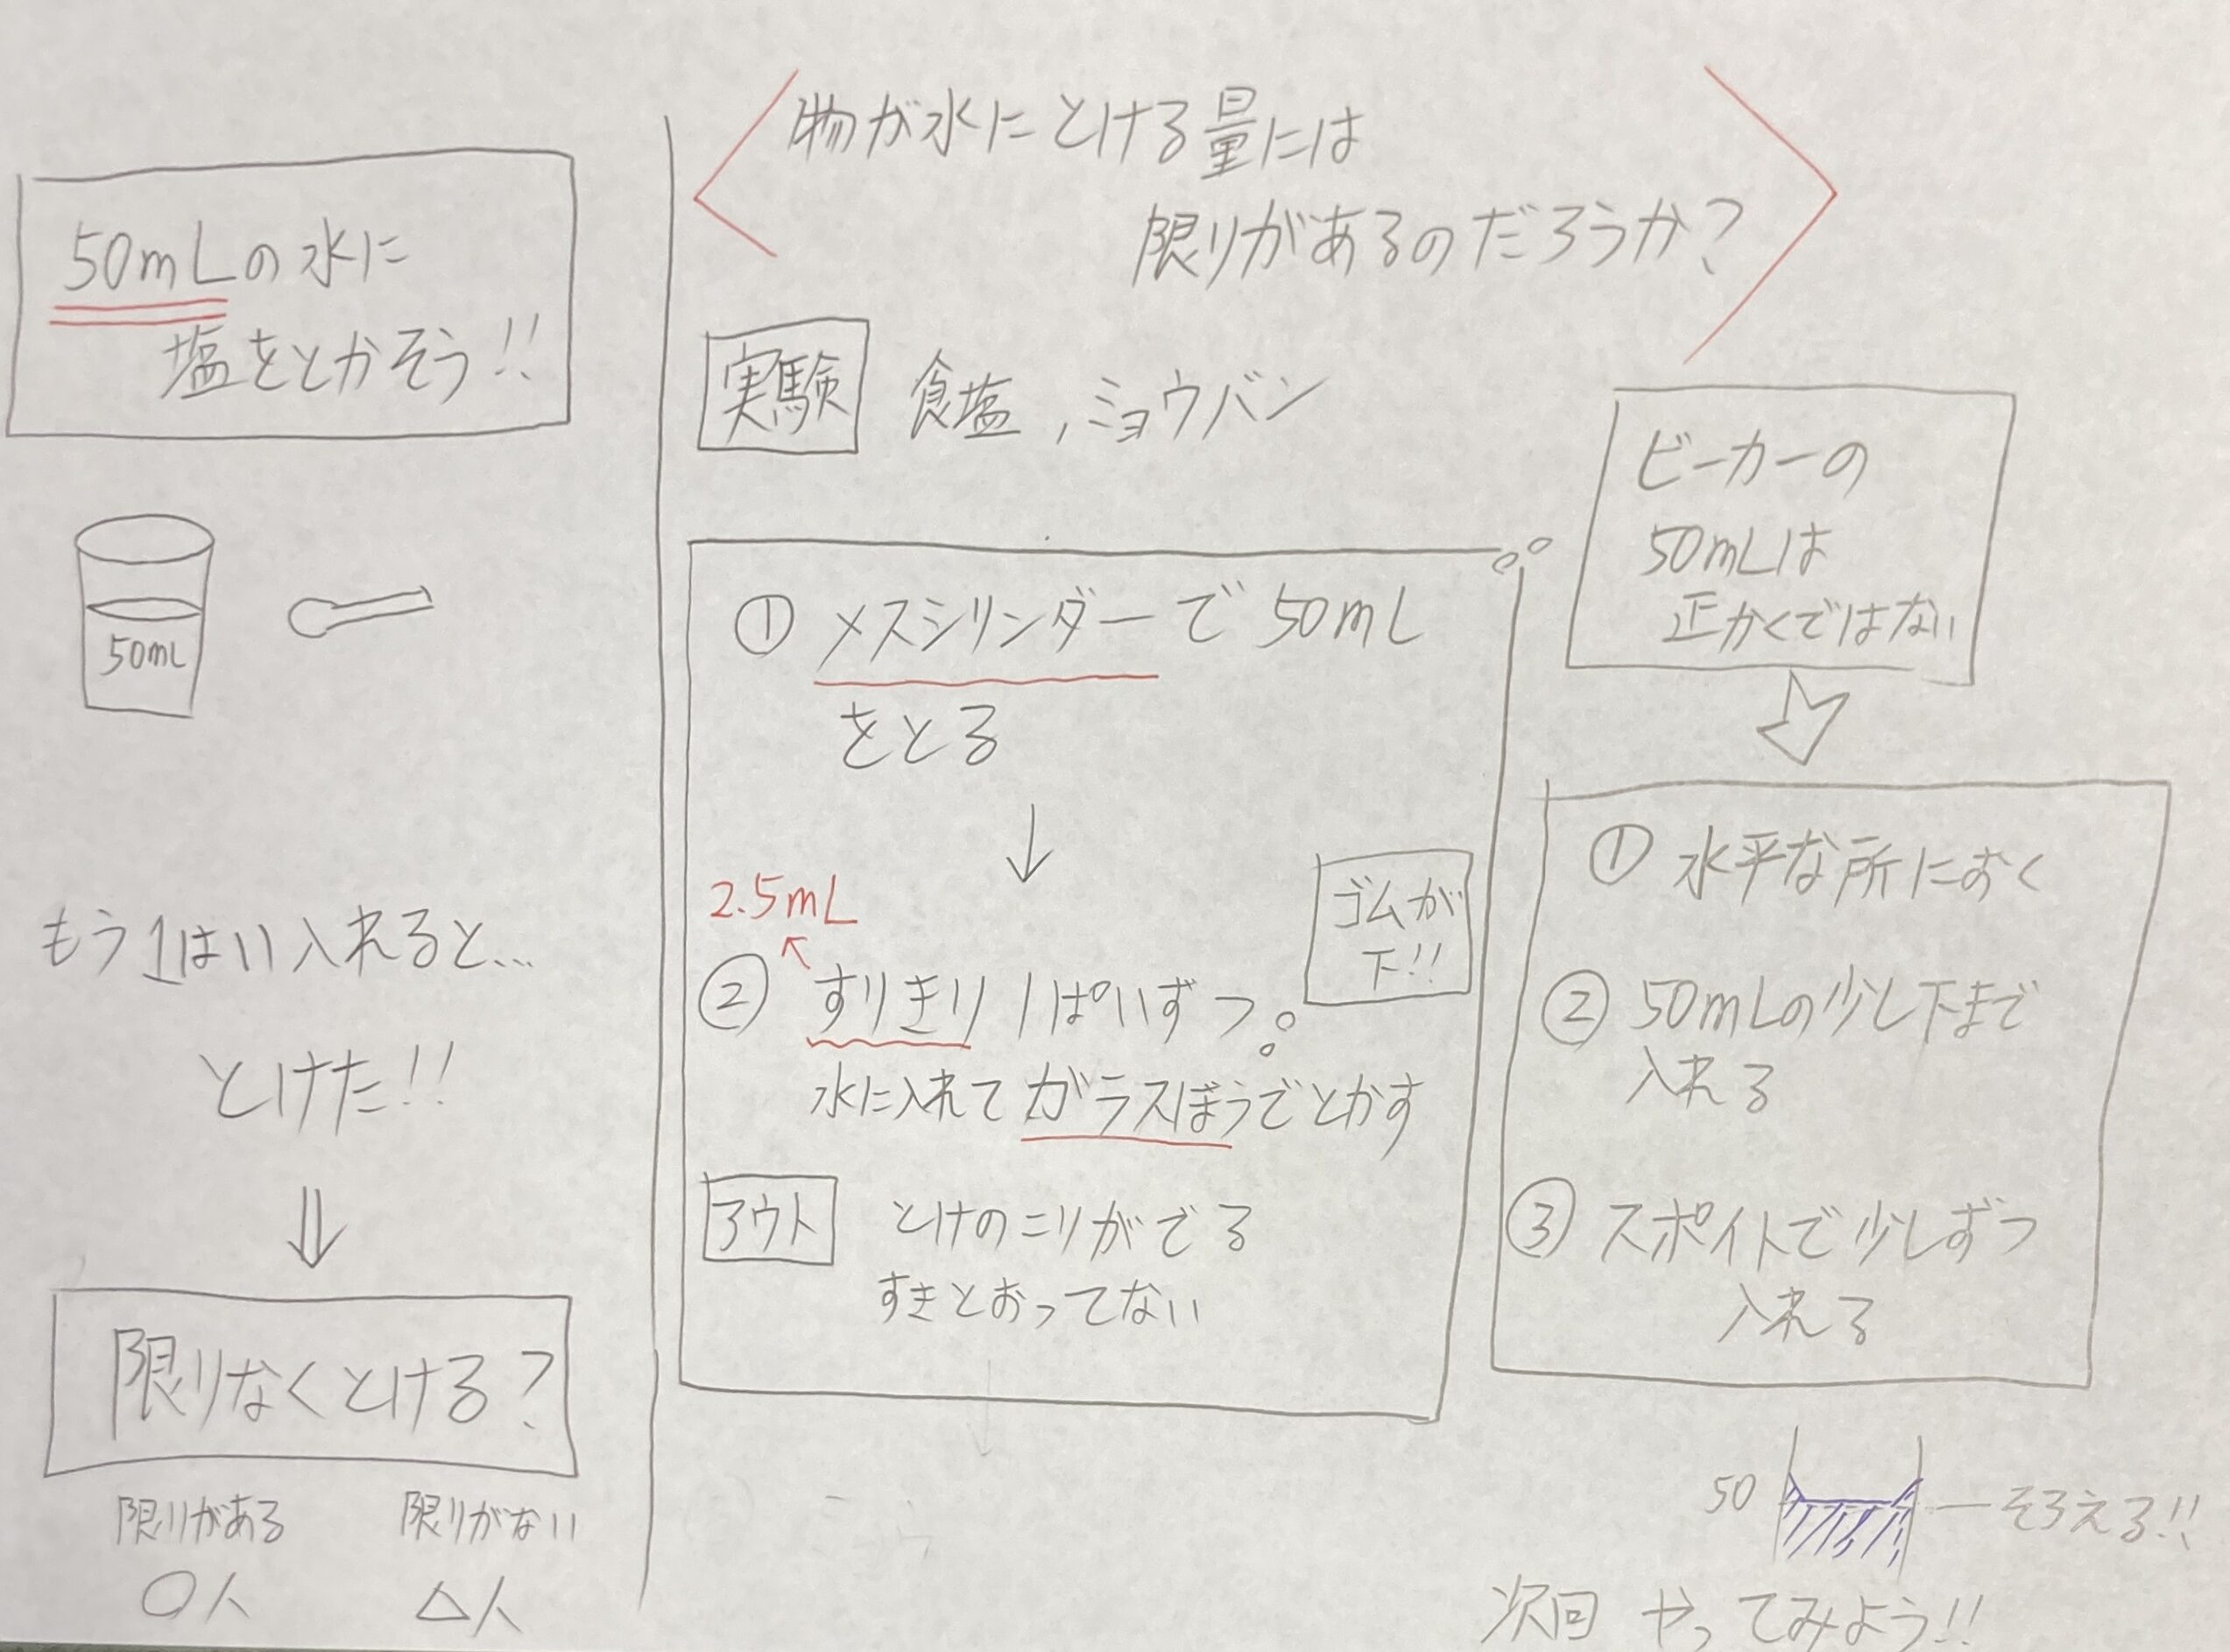 50mLの水に
塩をとかそう!!
50mL
もう1はい入れると…
とけた!!
限りなくとける?
限りがある 限りがない
○人 △人
物が水にとける量には
限りがあるのだろうか?
実験 食塩,ミョウバン
① メスシリンダーで50mL
をとる
2.5mL
② すりきり1ぱいずつ
水に入れてガラスぼうでとかす
ゴムが
下!!
アウト とけのこりがでる
すきとおってない
ビーカーの
50mLは
正かくではない
① 水平な所におく
② 50mLの少し下まで
入れる
③ スポイトで少しずつ
入れる
50 そろえる!!
次回 やってみよう!!